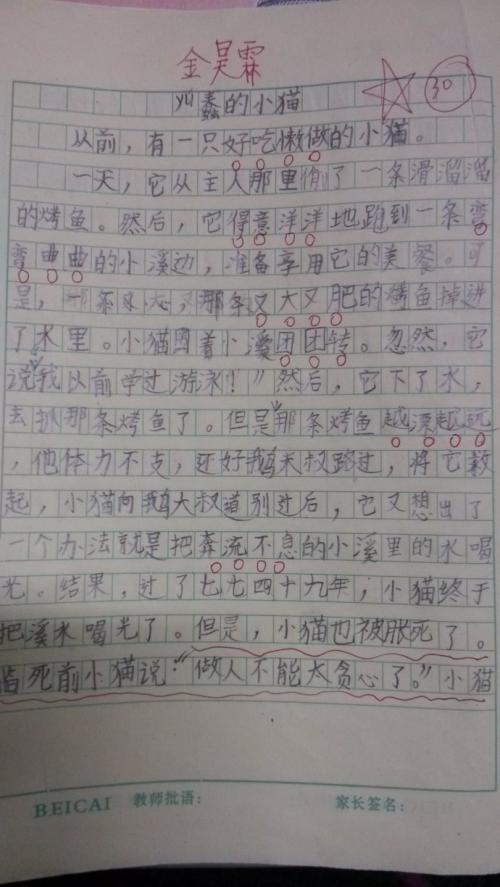 金昊霖
30
蠢的小猫
从前，有一只好吃懒做的小猫。
一天，它从主人那里偷了一条滑溜溜
的烤鱼。然后，它得意洋洋地跑到一条弯
弯曲曲的小溪边，准备享用它的美餐。可
是，一不小心，那条又大又肥的烤鱼掉进
了水里。小猫围着小溪团团转。忽然，它
说我以前学过游泳！”然后，它下了水，
去抓那条烤鱼了。但是那条烤鱼越漂越远
，他体力不支，还好鹅大叔路过，将它救
起，小猫向鹅大叔道别过后，它又想出了
一个办法就是把奔流不息的小溪里的水喝
光。结果，过了七七四十九年，小猫终于
把溪水喝光了。但是，小猫也被胀死了。
临死前小猫说：“做人不能太贪心了。”小猫
BEICAI 教师批语： 家长签名：